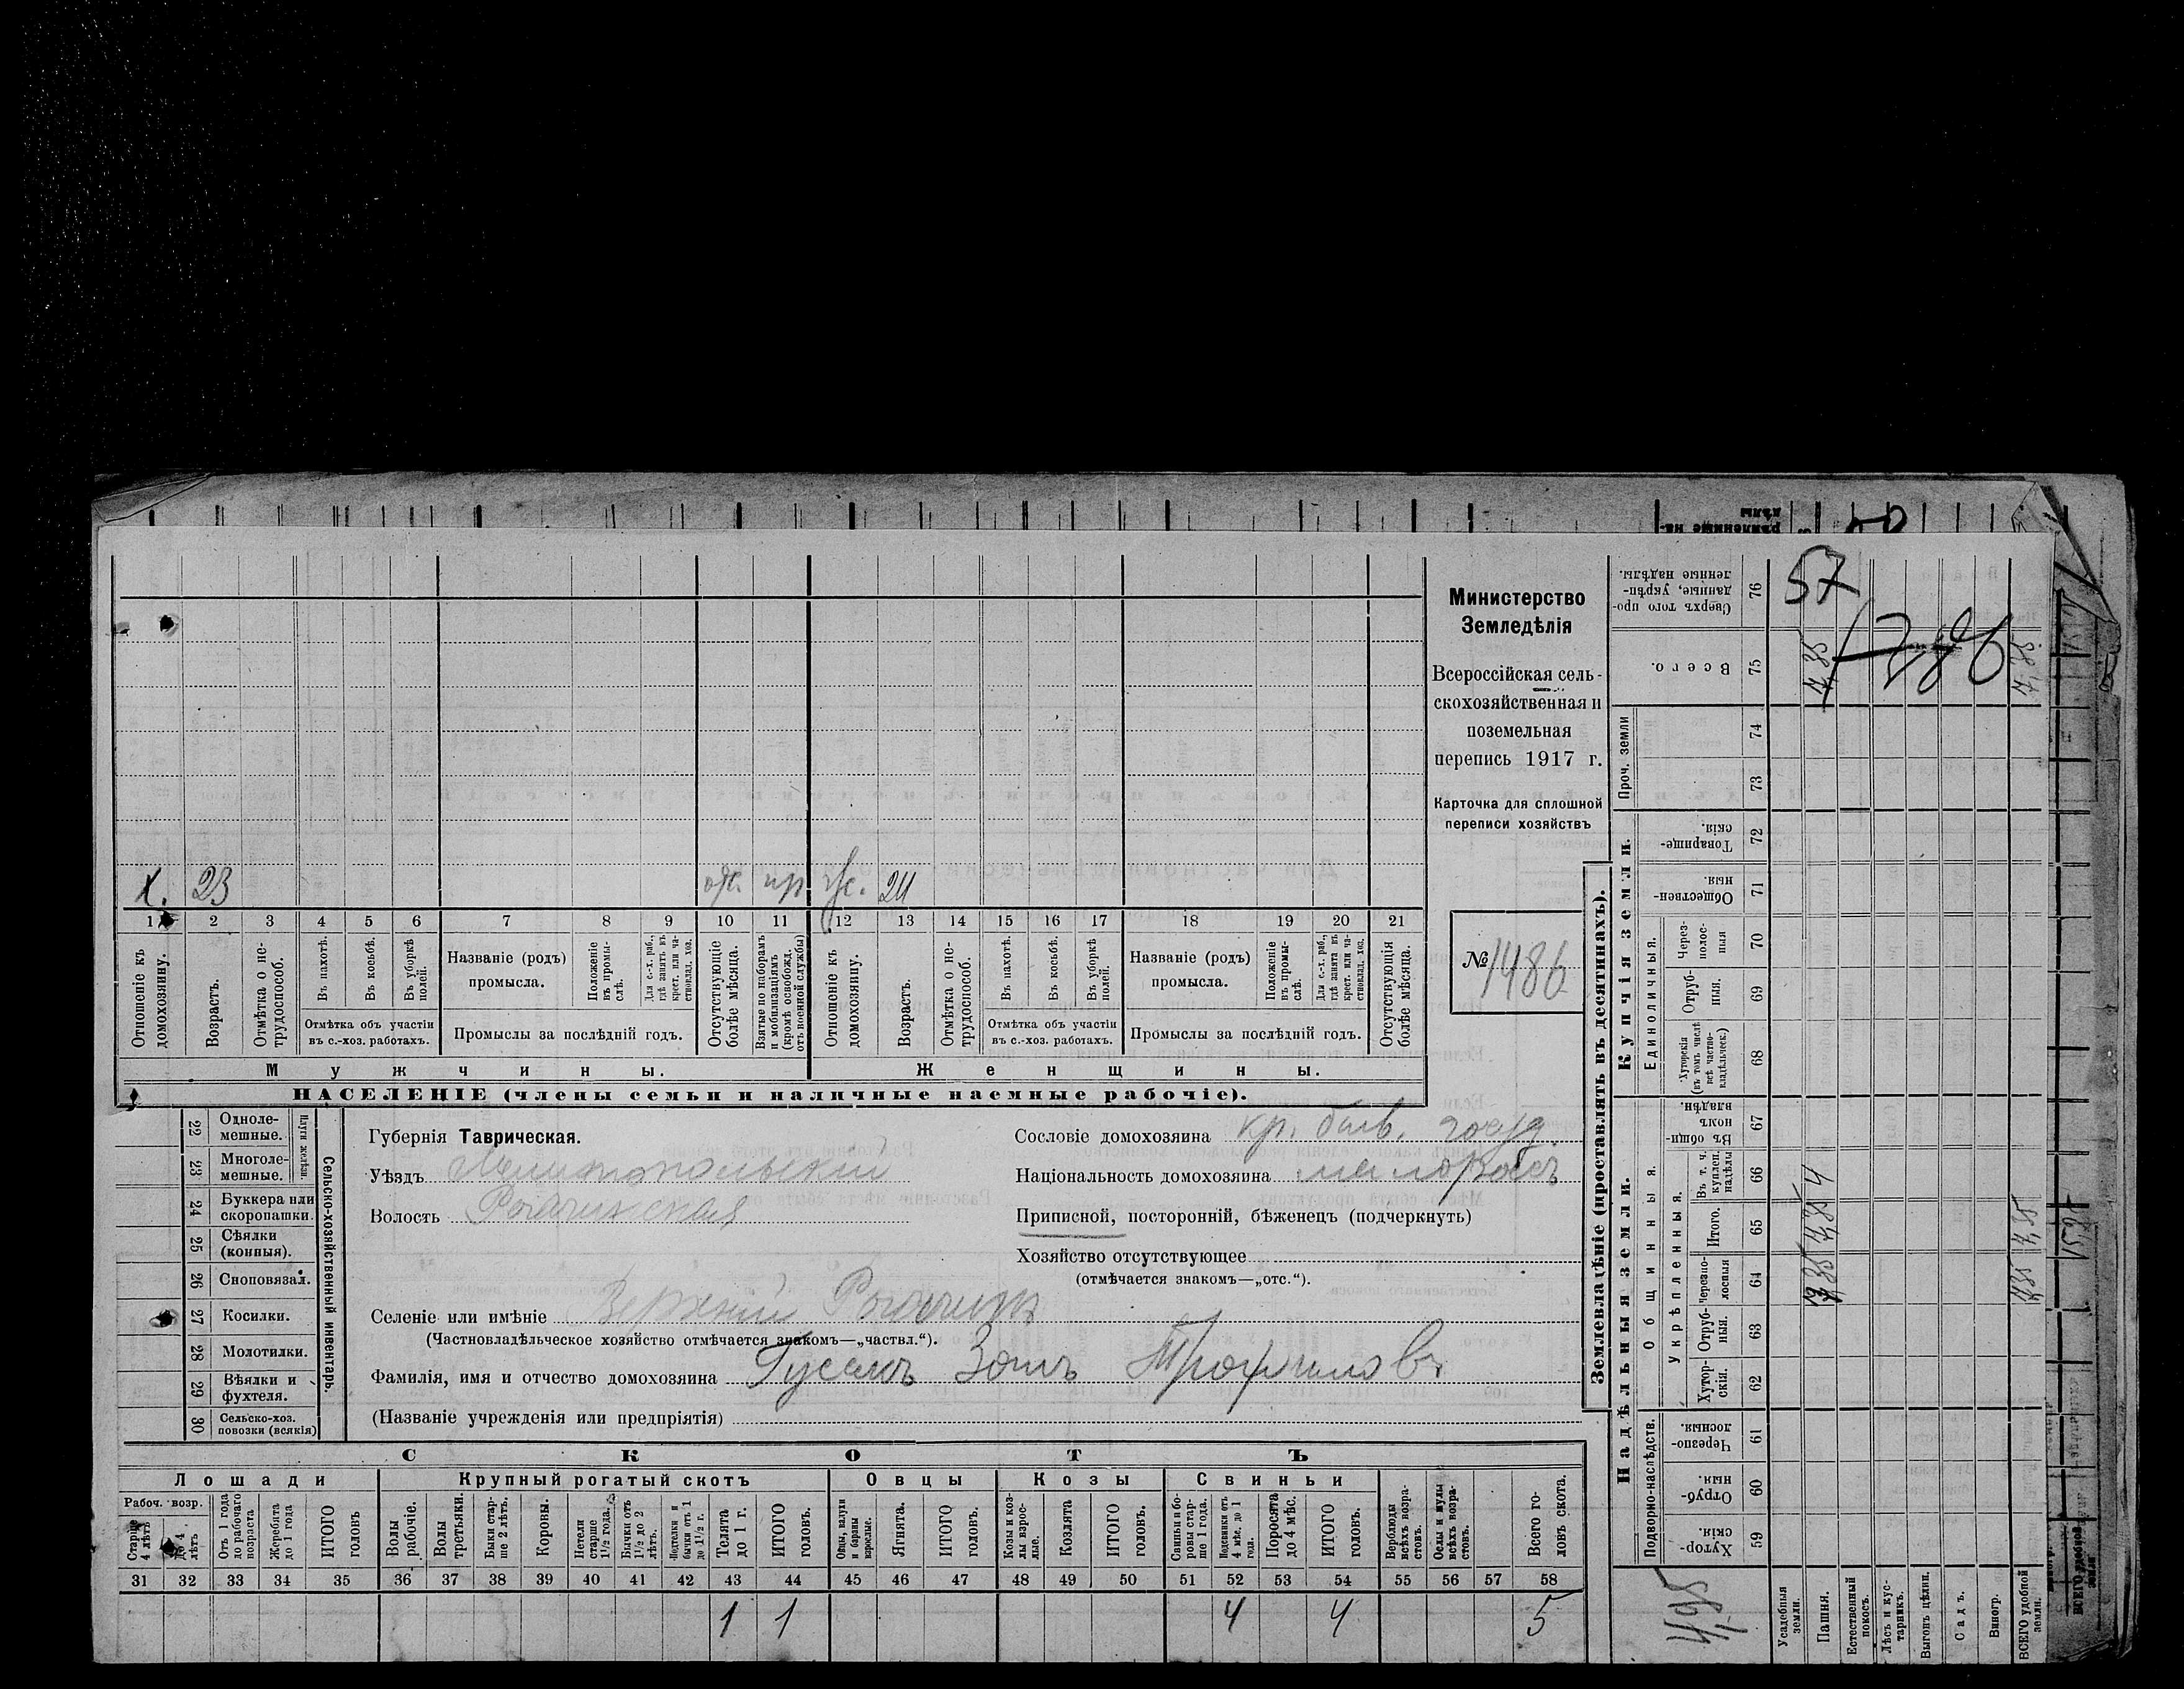 Министерство
Земледѣлія
Всероссійская сель-
скохозяйственная и
поземельная
перепись 1917 г.
Карточка для сплошной
переписи хозяйствъ
№ 1486
х. 23 отс. 24
1 2 3 4 5 6 7 8 9 10 11 12 13 14 15 16 17 18 19 20 21
Отношеніе къ домохозяину.
Возрастъ.
Отмѣтка о не-трудоспособ.
Въ пахотѣ.
Въ косьбѣ.
Въ уборкѣ полей.
Отмѣтка объ участіи
въ с.-хоз. работахъ.
Названіе (родъ)
промысла.
Положеніе въ промы-слѣ.
Для с.-х. раб., гдѣ занятъ въ крест. или ча-стновлад. хоз.
Промыслы за послѣдній годъ.
Отсутствующіе болѣе мѣсяца.
Взятые по наборамъ и мобилизаціямъ (кромѣ освобожд. отъ военной службы)
Отношеніе къ домохозяину.
Возрастъ.
Отмѣтка о не-трудоспособ.
Въ пахотѣ.
Въ косьбѣ.
Въ уборкѣ полей.
Отмѣтка объ участіи
въ с.-хоз. работахъ.
Названіе (родъ)
промысла.
Положеніе въ промы-слѣ.
Для с.-х. раб., гдѣ занята въ крест. или ча-стновлад. хоз.
Промыслы за послѣдній годъ.
Отсутствующія болѣе мѣсяца.
Мужчины.
Женщины.
НАСЕЛЕНІЕ (члены семьи и наличные наемные рабочіе).
Сельско-хозяйственный инвентарь.
Плуги желѣзн.
22 Одноле-мешные.
23 Многоле-мешные.
24 Буккера или скоропашки.
25 Сѣялки (конныя).
26 Сноповязал.
27 Косилки.
28 Молотилки.
29 Вѣялки и фухтеля.
30 Сельско-хоз. повозки (всякія)
Губернія Таврическая.
Уѣздъ Мелитопольскій
Волость Рогачинская
Селеніе или имѣніе Верхній Рогачикъ
(Частновладѣльческое хозяйство отмѣчается знакомъ—„частвл.“).
Фамилія, имя и отчество домохозяина Гусакъ Зотъ Трофимовъ
(Названіе учрежденія или предпріятія)
Сословіе домохозяина кр. бывш. госуд.
Національность домохозяина малороссъ
Приписной, посторонній, бѣженецъ (подчеркнуть)
Хозяйство отсутствующее
(отмѣчается знакомъ—„отс.“).
СКОТЪ
Лошади
Крупный рогатый скотъ
Овцы
Козы
Свиньи
Рабоч. возр.
Старше 4 лѣтъ
до 4 лѣтъ
Отъ 1 года до рабочаго возраста
Жеребята до 1 года
ИТОГО головъ
Волы рабочіе.
Волы третьяки.
Быки стар-ше 2 лѣтъ.
Коровы.
Нетели старше 1½ года.
Бычки отъ 1½ до 2 лѣтъ.
Подтелки и бычки отъ 1 до 1½ г.
Телята до 1 г.
ИТОГО головъ.
Овцы, валухи и бараны взрослые.
Ягнята.
ИТОГО головъ.
Козы и коз-лы взрос-лые.
Козлята
ИТОГО головъ.
Свиньи и бо-ровы стар-ше 1 года.
Подсвинки отъ 4 мѣс. до 1 года.
Поросята до 4 мѣс.
ИТОГО головъ.
Верблюды всѣхъ возра-стовъ.
Ослы и мулы всѣхъ возра-стовъ.
Всего го-ловъ скота.
31 32 33 34 35 36 37 38 39 40 41 42 43 44 45 46 47 48 49 50 51 52 53 54 55 56 57 58
1 1 4 4 5
Землевладѣніе (проставлять въ десятинахъ).
Надѣльныя земли.
Купчія земли.
Проч. земли
Подворно-наслѣдств.
Общинныя
Укрѣпленныя.
Единоличныя.
Сверхъ того про-данные, укрѣп-ленные надѣлы. 76
Всего. 75
74
73
Товарище-скія. 72
Обществен-ныя. 71
Через-полос-ныя 70
Отруб-ныя. 69
Хуторскія (въ томъ числѣ всѣ частно-владѣльческ.) 68
Въ общин-номъ владѣн. 67
Въ т. ч. куплен. надѣлы 66
Итого. 65
Черезпо-лосныя 64
Отруб-ныя. 63
Хутор-скія. 62
Черезпо-лосныя. 61
Отруб-ныя. 60
Хутор-скія. 59
Усадебныя земли.
Пашня.
Естественный покосъ.
Лѣсъ и кус-тарникъ.
Выгонъ цѣлин.
Садъ.
Виногр.
ВСЕГО удобной земли.
57
1486
7,85
7,85
7,85
7,85
4
7,85
7,85